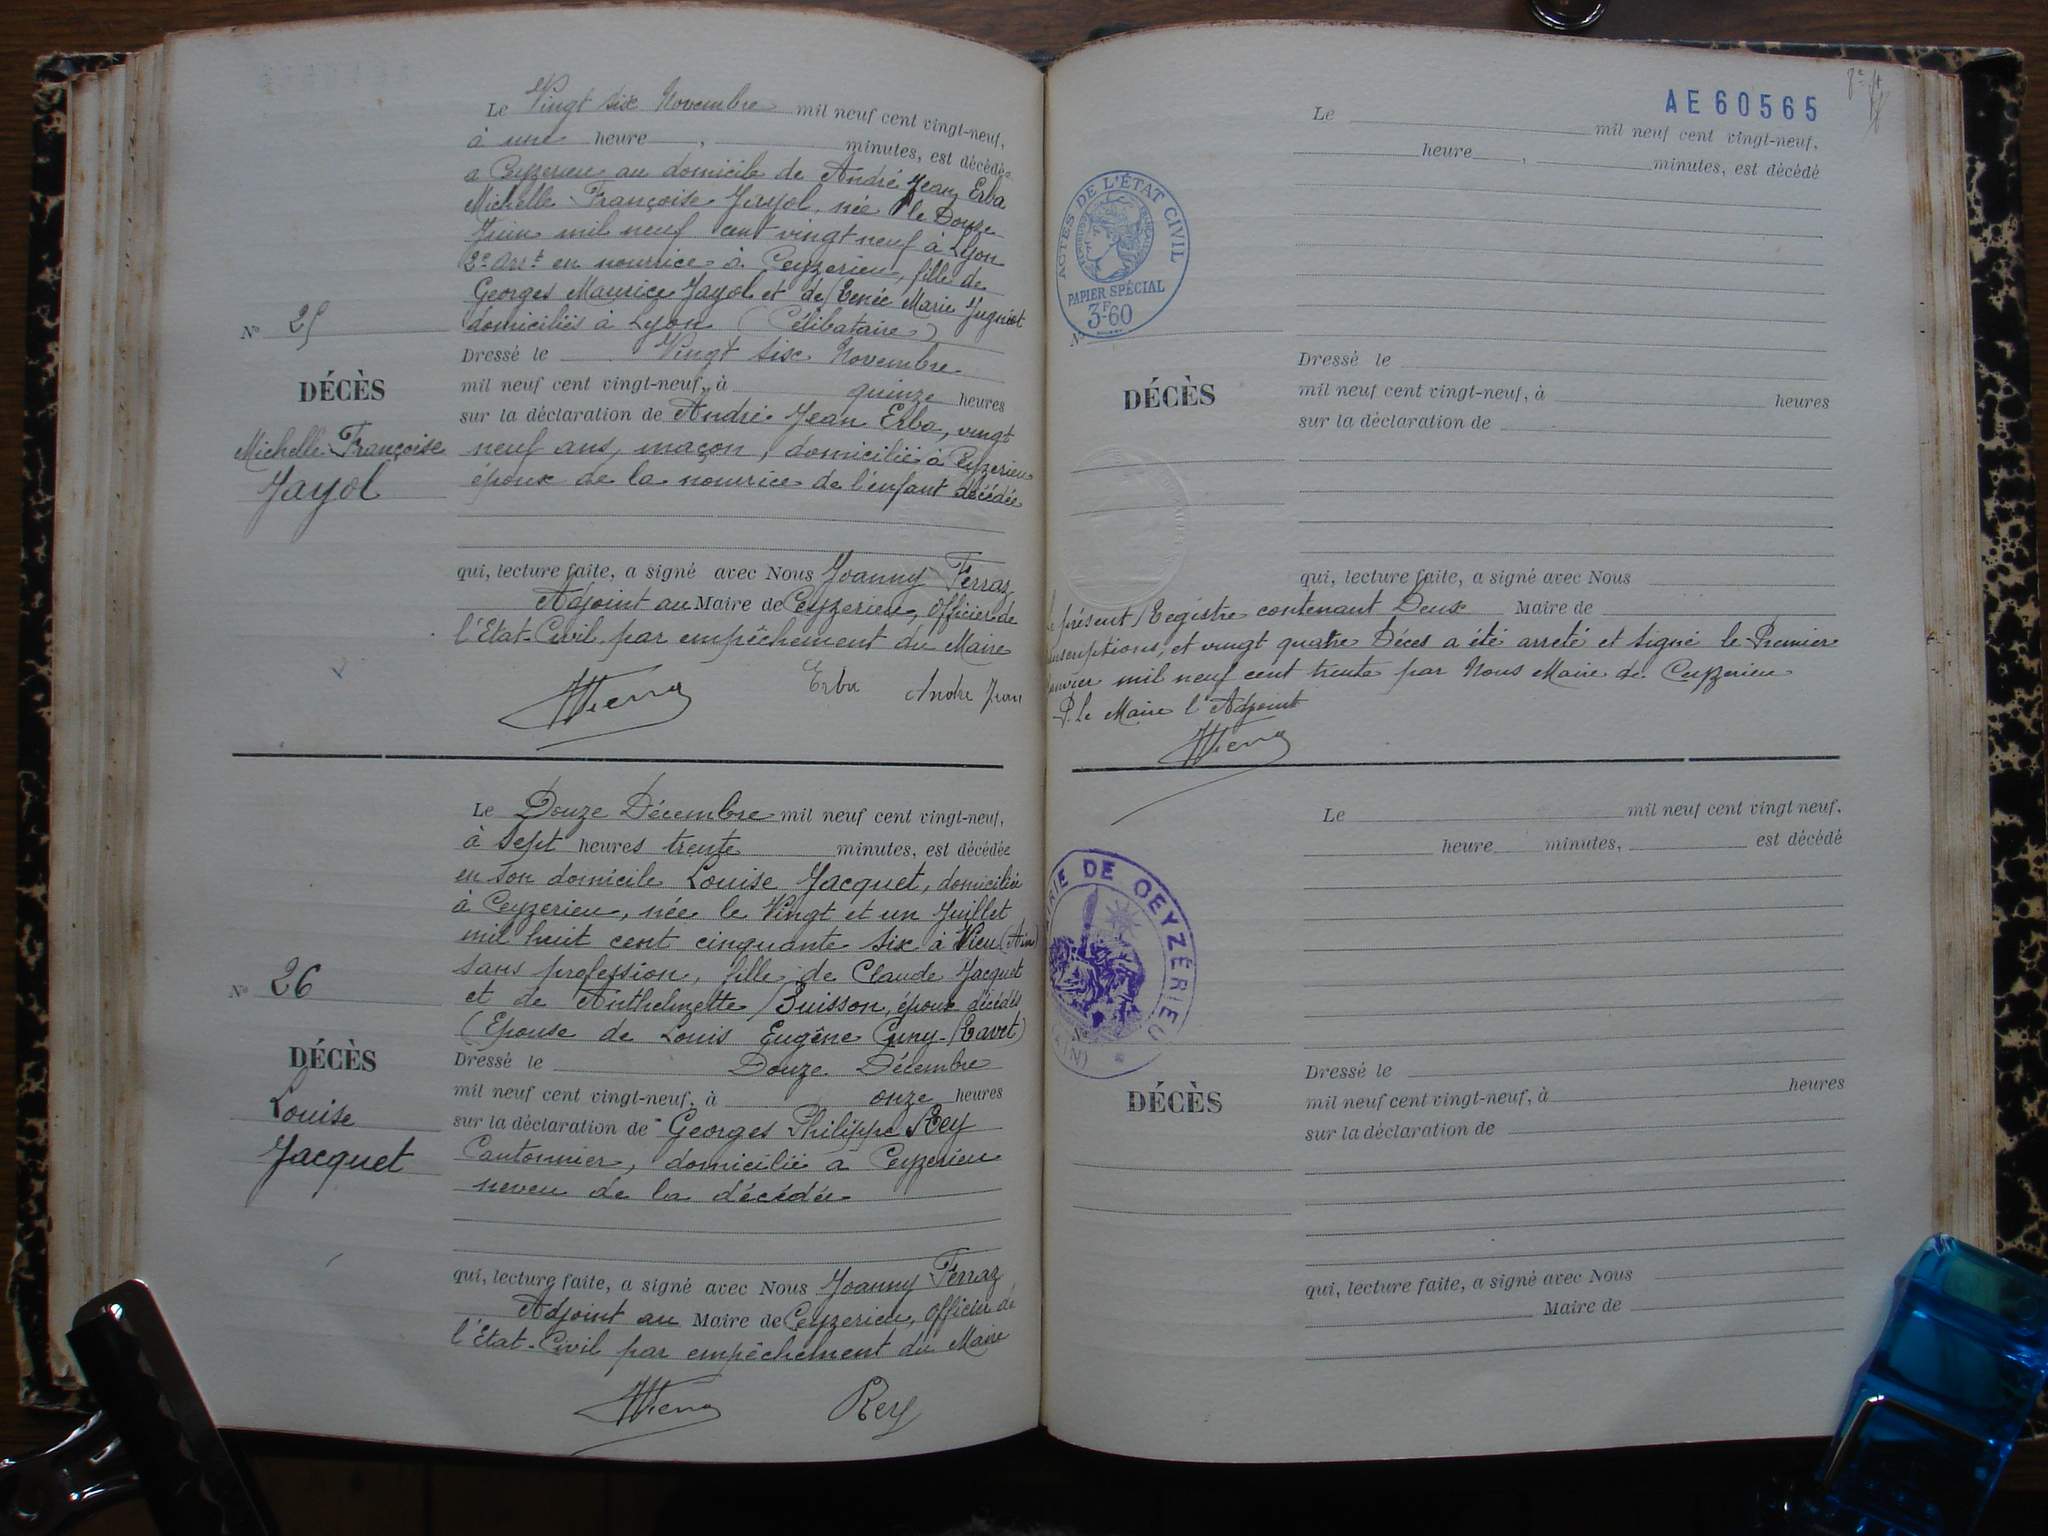 Le Vingt six Novembre mil neuf cent vingt-neuf,
à une heure , minutes, est décédée
a Ceyzerieu au domicile de André Jean Erba
Michelle Françoise Jayol, née le Douze
Juin mil neuf cent vingt neuf à Lyon
2e Arrt en nourrice à Ceyzerieu, fille de
Georges Maurice Jayol et de Renée Marie
domiciliés à Lyon (Célibataire)
No 25
Dressé le Vingt six Novembre
mil neuf cent vingt-neuf, à quinze heures
DÉCÈS
sur la déclaration de André Jean Erba, vingt
Michelle Françoise
neuf ans, maçon, domicilié à Ceyzerieu
Jayol
époux de la nourrice de l'enfant décédée
qui, lecture faite, a signé avec Nous Joanny Ferraz
Adjoint au Maire de Ceyzerieu, Officier de
l'Etat-Civil par empêchement du Maire
Erba André Jean
Le Douze Décembre mil neuf cent vingt-neuf,
à sept heures trente minutes, est décédée
en son domicile Louise Jacquet, domiciliée
à Ceyzerieu, née le Vingt et un Juillet
mil huit cent cinquante six à Vieu (Ain)
sans profession, fille de Claude Jacquet
No 26
et de Anthelmette Buisson, époux décédés
(Epouse de Louis Eugène Cuny-Ravet)
DÉCÈS
Dressé le Douze Décembre
mil neuf cent vingt-neuf, à onze heures
Louise
sur la déclaration de Georges Philippe Rey
Jacquet
Cantonnier, domicilié a Ceyzerieu
neveu de la décédée
qui, lecture faite, a signé avec Nous Joanny Ferraz
Adjoint au Maire de Ceyzerieu, Officier de
l'Etat-Civil par empêchement du Maire
Rey
AE 60565
Le mil neuf cent vingt-neuf,
heure , minutes, est décédé
ACTES DE L'ÉTAT CIVIL
PAPIER SPÉCIAL
3F60
No
Dressé le
mil neuf cent vingt-neuf, à heures
DÉCÈS
sur la déclaration de
qui, lecture faite, a signé avec Nous
Maire de
présent Registre contenant Deux
et vingt quatre Décès a été arrêté et signé le Premier
mil neuf cent trente par Nous Maire de Ceyzerieu
P. le Maire l'Adjoint
Le mil neuf cent vingt neuf,
heure minutes, est décédé
MAIRIE DE CEYZÉRIEU
(AIN)
Dressé le
mil neuf cent vingt-neuf, à heures
DÉCÈS
sur la déclaration de
qui, lecture faite, a signé avec Nous
Maire de